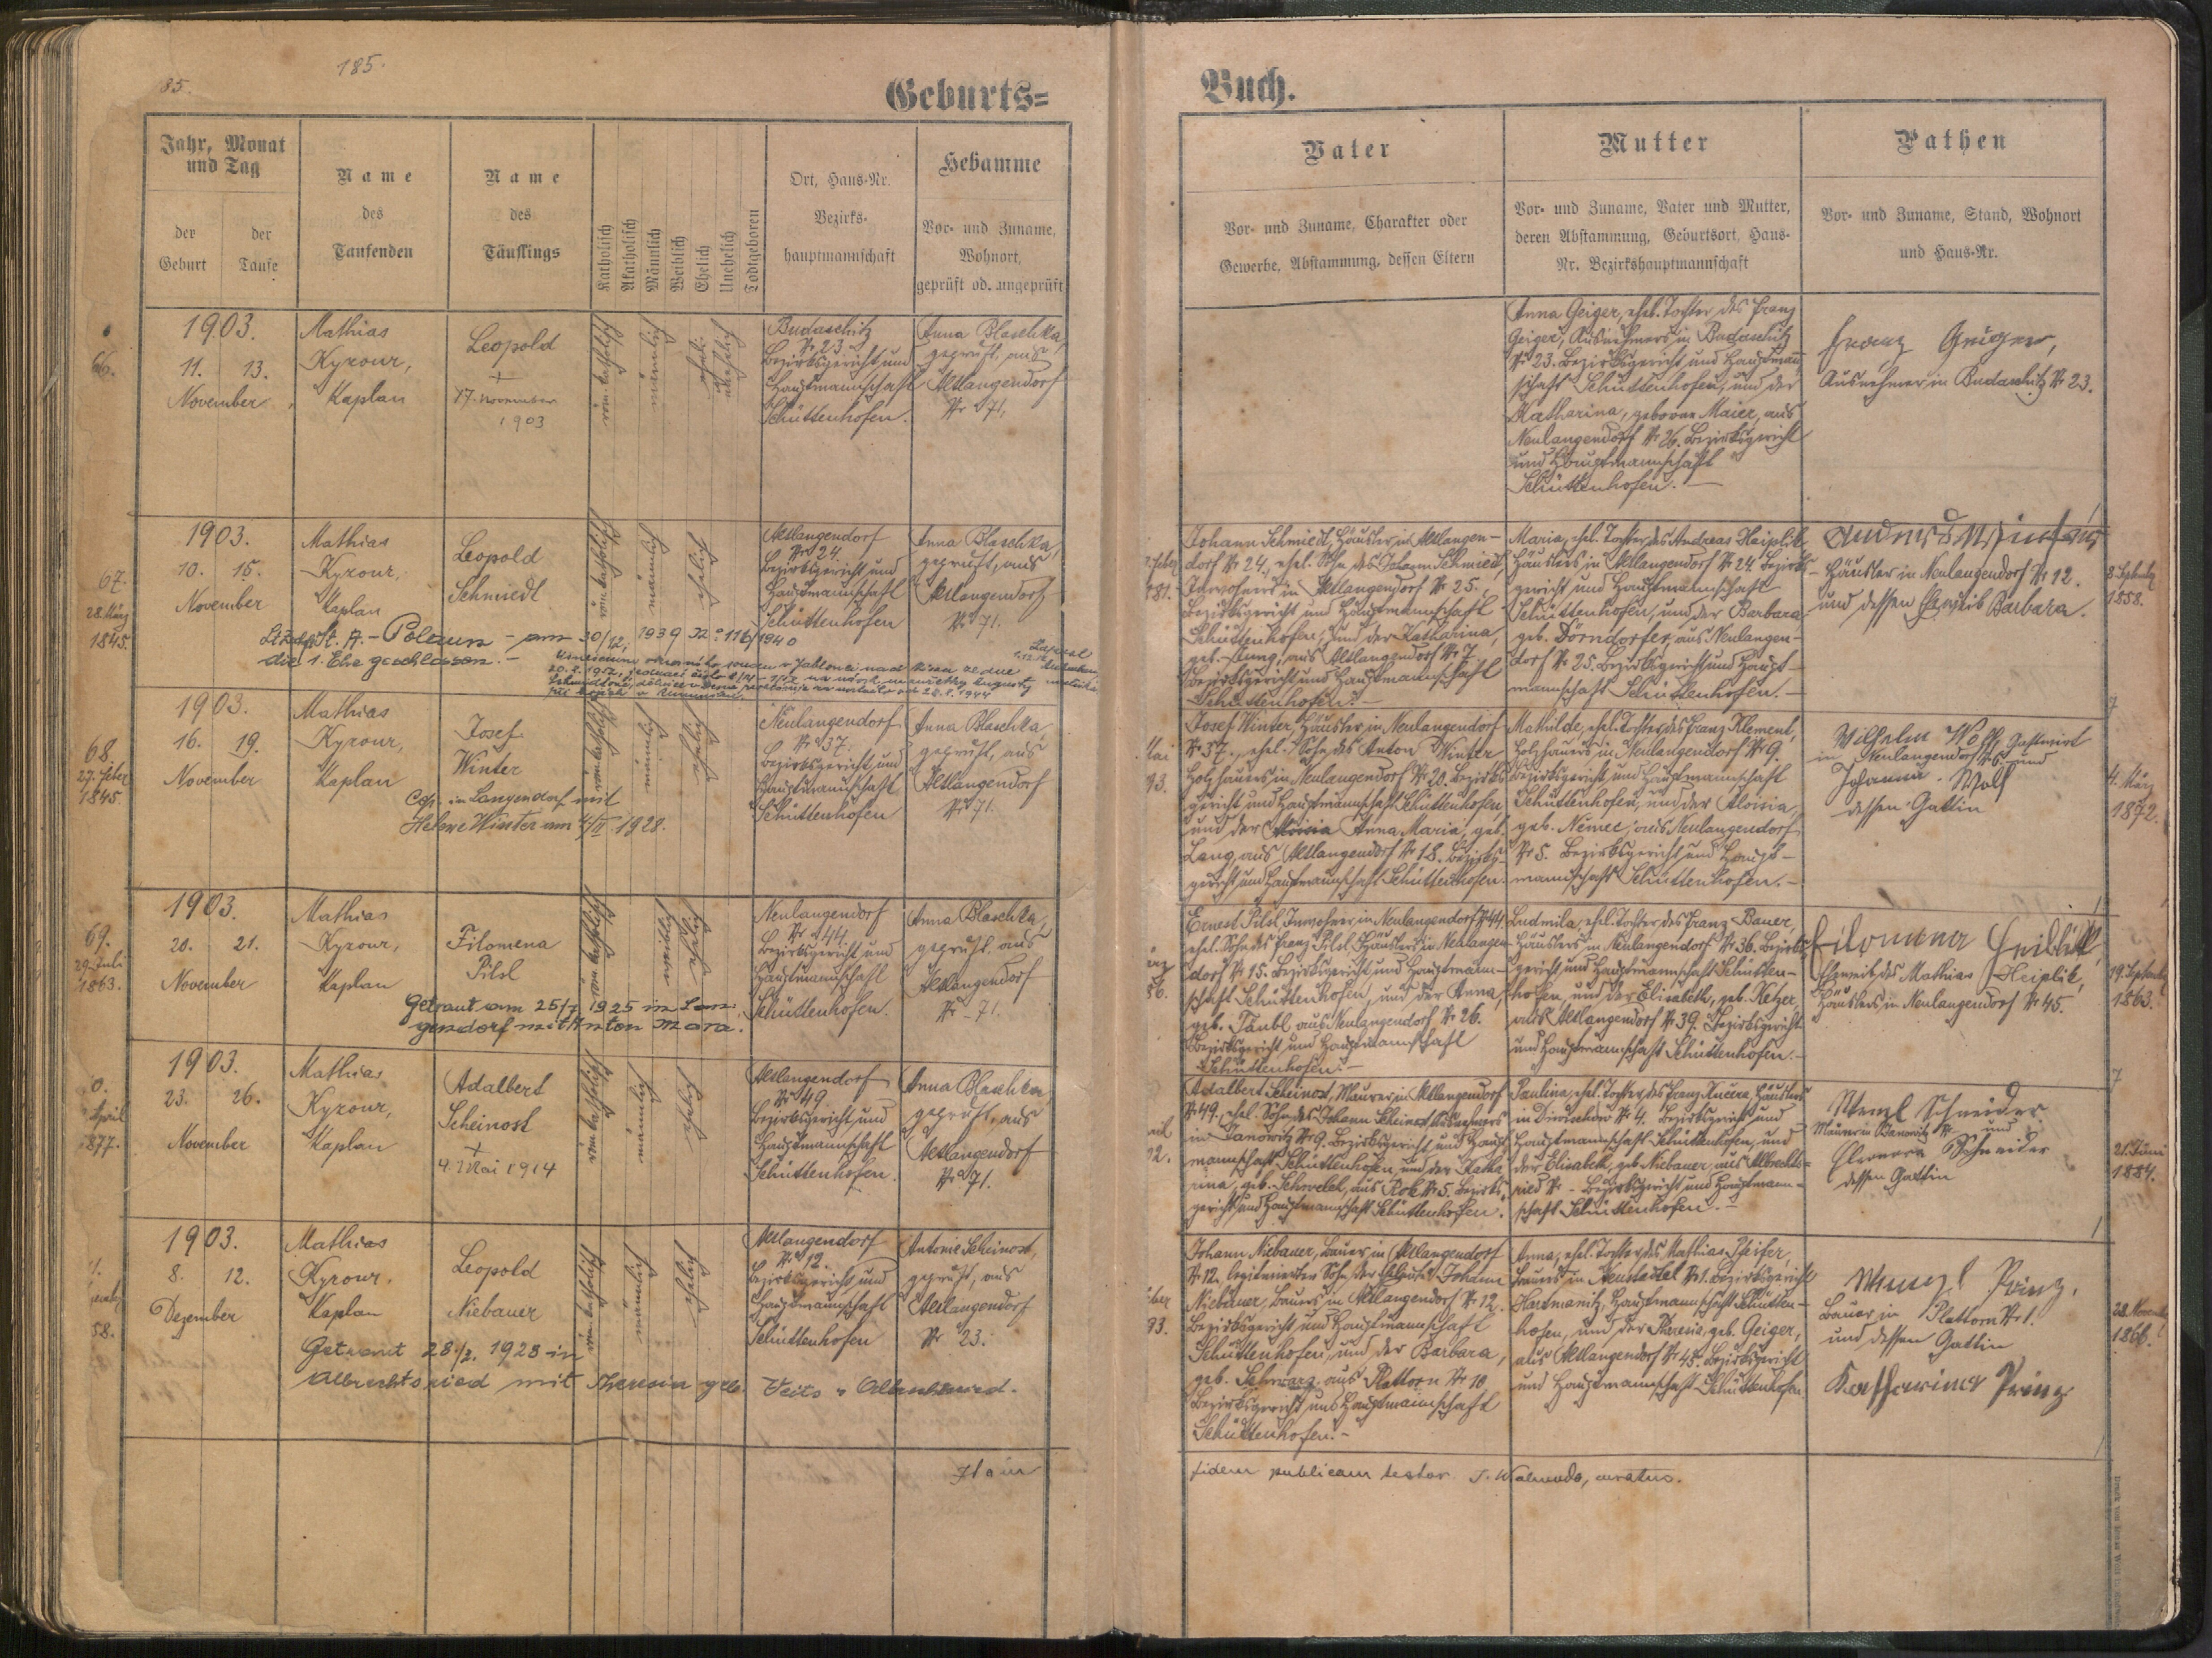 185.
85.
Geburts=
Buch.
Jahr, Monat
und Tag
der
Geburt
der
Taufe
Name
des
Taufenden
Name
des
Täuflings
Katholisch
Akatholisch
Männlich
Weiblich
Ehelich
Unehelich
Todtgeboren
Ort, Haus-Nr.
Bezirks-
hauptmannschaft
Hebamme
Vor- und Zuname,
Wohnort,
geprüft od. ungeprüft
Vater
Vor- und Zuname, Charakter oder
Gewerbe, Abstammung, dessen Eltern
Mutter
Vor- und Zuname, Vater und Mutter,
deren Abstammung, Geburtsort, Haus-
Nr. Bezirkshauptmannschaft
Pathen
Vor- und Zuname, Stand, Wohnort
und Haus-Nr.
66.
1903.
11. 13.
November
Mathias
Kyrour,
Kaplan
Leopold
+
17. november
1903
röm. katholisch
männlich
unehelich
Budaschitz
Nr 23
Bezirksgericht und
Hauptmannschaft
Schüttenhofen.
Anna Blaschka,
geprüft, aus
Altlangendorf
Nr 71.
Anna Geiger, ehel. Tochter des Franz
Geiger, Ausnehmers in Budaschitz
Nr 23. Bezirksgericht und Hauptmann-
schaft Schüttenhofen, und der
Katharina, geborne Maier, aus
Neulangendorf Nr 26. Bezirksgericht
und Hauptmannschaft
Schüttenhofen.
Franz Geiger,
Ausnehmer in Budaschitz Nr 23.
67.
28. März
1845.
1903.
10. 15.
November
Mathias
Kyrour,
Kaplan
Leopold
Schmiedt
röm. katholisch
männlich
ehelich
Altlangendorf
Nr 24.
Bezirksgericht und
Hauptmannschaft
Schüttenhofen
Anna Blaschka,
geprüft, aus
Altlangendorf
Nr 71.
St. A. - Polaun - am 30/12, 1939 N: 116/1940
die 1. Ehe geschlossen. -
Johann Schmiedt, Häusler in Altlangen-
dorf Nr 24, ehel. Sohn des Johann Schmiedt,
Inwohners in Altlangendorf Nr 25.
Bezirksgericht und Hauptmannschaft
Schüttenhofen, und der Katharina,
geb. Jung, aus Altlangendorf Nr 7.
Bezirksgericht und Hauptmannschaft
Schüttenhofen. -
Maria, ehel. Tochter des Andreas Haiplik,
Häuslers in Altlangendorf Nr 24. Bezirks-
gericht und Hauptmannschaft
Schüttenhofen, und der Barbara
geb. Dörndorfer, aus Neulangen-
dorf Nr 25. Bezirksgericht und Haupt-
mannschaft Schüttenhofen. -
Häusler in Neulangendorf Nr 12.
und dessen Eheweib Barbara.
1858.
68.
27. Feber
1845.
1903.
16. 19.
November
Mathias
Kyrour,
Kaplan
Josef
Winter
röm. katholisch
männlich
ehelich
Neulangendorf
Nr 37.
Bezirksgericht und
Hauptmannschaft
Schüttenhofen
Anna Blaschka,
geprüft, aus
Altlangendorf
Nr 71.
Cop. in Langendorf mit
Helene Winter am 4/II. 1928.
Josef Winter, Häusler in Neulangendorf
Nr 37., ehel. Sohn des Anton Winter
Holzhauers in Neulangendorf Nr 20. Bezirks-
gericht und Hauptmannschaft Schüttenhofen,
und der Aloisia Anna Maria, geb.
Lang, aus Altlangendorf Nr 18. Bezirks-
gericht und Hauptmannschaft Schüttenhofen.
Mathilde, ehel. Tochter des Franz Klement,
Holzhauers in Neulangendorf Nr 9.
Bezirksgericht und Hauptmannschaft
Schüttenhofen, und der Aloisia,
geb. Němec, aus Neulangendorf
Nr 5. Bezirksgericht und Haupt-
mannschaft Schüttenhofen. -
Wilhelm Wolf, Gastwirt
in Neulangendorf Nr 6. und
Johanna Wolf
dessen Gattin
4. März
1872.
69.
29. Juli
1863.
1903.
20. 21.
November
Mathias
Kyrour,
Kaplan
Filomena
Pilsl
röm. katholisch
weiblich
ehelich
Neulangendorf
Nr 44.
Bezirksgericht und
Hauptmannschaft
Schüttenhofen.
Anna Blaschka,
geprüft, aus
Altlangendorf
Nr - 71.
Getraut am 25/7 1925 in Lan-
gendorf mit Anton Mara.
Ernest Pilsl, Inwohner in Neulangendorf Nr 44.
ehel. Sohn des Franz Pilsl Häuslers in Neulangen-
dorf Nr 15. Bezirksgericht und Hauptmann-
schaft Schüttenhofen, und der Anna,
geb. Tantl aus Neulangendorf Nr 26.
Bezirksgericht und Hauptmannschaft
Schüttenhofen. -
Ludmila, ehel. Tochter des Franz Bauer,
Häuslers in Neulangendorf Nr 36. Bezirks-
gericht und Hauptmannschaft Schütten-
hofen, und der Elisabeth, geb. Ketzer,
aus Altlangendorf Nr 39. Bezirksgericht
und Hauptmannschaft Schüttenhofen. -
Filomena
Eheweib des Mathias Heiplik,
Häuslers in Neulangendorf Nr 45.
1863.
April
1877.
1903.
23. 26.
November
Mathias
Kyrour,
Kaplan
Adalbert
Scheinost
+
4. Mai 1914
röm. katholisch
männlich
ehelich
Altlangendorf
Nr 49
Bezirksgericht und
Hauptmannschaft
Schüttenhofen.
Anna Blaschka,
geprüft, aus
Altlangendorf
Nr 71.
Adalbert Scheinost, Maurer in Altlangendorf
Nr 49., ehel. Sohn des Johann Scheinost Ausnehmers
in Janowitz Nr 9. Bezirksgericht und Haupt-
mannschaft Schüttenhofen, und der Katha-
rina, geb. Schwelel, aus Rok Nr 5. Bezirks-
gericht und Hauptmannschaft Schüttenhofen.
Paulina, ehel. Tochter des Franz Kučera, Häuslers
in Nr 4. Bezirksgericht und
Hauptmannschaft Schüttenhofen, und
der Elisabeth, geb. Niebauer, aus Albrechts-
ried Nr - Bezirksgericht und Hauptmann-
schaft Schüttenhofen. -
Wenzl Schneider
Maurer in Janowitz Nr und
Eleonora Schneider
dessen Gattin
21. Juni
1884.
1903.
8. 12.
Dezember
Mathias
Kyrour,
Kaplan
Leopold
Niebauer
röm. katholisch
männlich
ehelich
Altlangendorf
Nr 12.
Bezirksgericht und
Hauptmannschaft
Schüttenhofen
Antonie Scheinost,
geprüft, aus
Altlangendorf
Nr 23.
Getraut 28./2. 1928 in
Albrechtsried mit Theresia geb. Veits
Johann Niebauer, Bauer in Altlangendorf
Nr 12, legitimierter Sohn der Eheleute Johann
Niebauer, Bauers in Altlangendorf Nr 12.
Bezirksgericht und Hauptmannschaft
Schüttenhofen, und der Barbara,
geb. Schwarz, aus Plattorn Nr 10
Bezirksgericht und Hauptmannschaft
Schüttenhofen. -
Anna, ehel. Tochter des Mathias Pfeifer,
Bauers in Neustadel Nr 1. Bezirksgericht
Hartmanitz, Hauptmannschaft Schütten-
hofen, und der Theresia, geb. Geiger,
aus Altlangendorf Nr 48. Bezirksgericht
und Hauptmannschaft Schüttenhofen.
Wenzl Prinz,
Bauer in Plattorn Nr 1.
und dessen Gattin
Katharina Prinz
1866.
fidem publicam testor J. curatus.